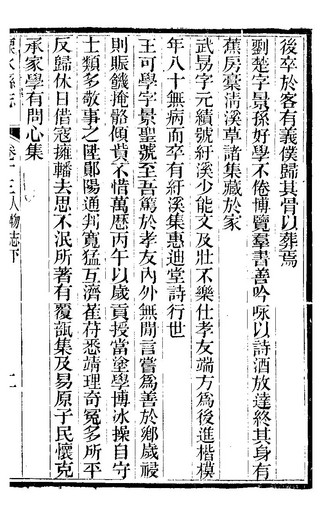 後卒於客有義僕歸其骨以葬焉
劉楚字景孫好學不倦博覽羣書善吟咏以詩酒放達終其身有
蕉房稾淸溪草諸集藏於家
武昜字元續號紅溪少能文及壯不樂仕孝友端方爲後進楷模
年八十無病而卒有紅溪集惠迪堂詩行世
王可學字景聖號至吾篤於孝友內外無閒言嘗爲善於鄕歲祲
則賑饑掩骼傾貲不惜萬歷丙午以歲貢授當塗學博冰操自守
士類多敬事之陞鄖陽通判寬猛互濟萑苻悉靖理奇冤多所平
反歸休日借寇擁轓去思不泯所著有覆瓿集及易原子民懷克
承家學有問心集
溧水縣志
卷十三人物志下
二